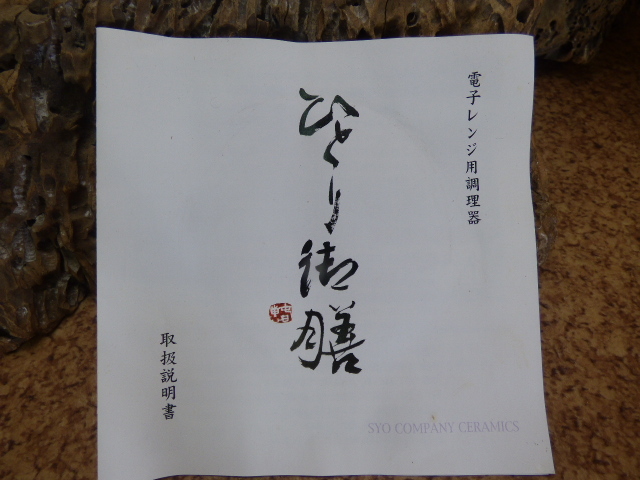 電子レンジ用調理器
ひとり御膳
取扱説明書
SYO COMPANY CERAMICS